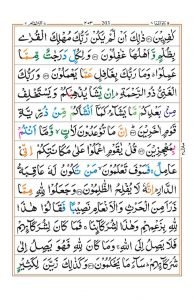 كٰفِرِيْنَ ذٰلِكَ اَنْ لَّمْ يَكُنْ رَّبُّكَ مُهْلِكَ الْقُرٰى
بِظُلْمٍ وَّاَهْلُهَا غٰفِلُوْنَ وَلِكُلٍّ دَرَجٰتٌ مِّمَّا
عَمِلُوْا وَمَا رَبُّكَ بِغَافِلٍ عَمَّا يَعْمَلُوْنَ وَرَبُّكَ
الْغَنِيُّ ذُو الرَّحْمَةِ اِنْ يَّشَاْ يُذْهِبْكُمْ وَيَسْتَخْلِفْ
مِنْۢ بَعْدِكُمْ مَّا يَشَآءُ كَمَآ اَنْشَاَكُمْ مِّنْ ذُرِّيَّةِ
قَوْمٍ اٰخَرِيْنَ اِنَّ مَا تُوْعَدُوْنَ لَاٰتٍ وَّمَآ اَنْتُمْ
بِمُعْجِزِيْنَ قُلْ يٰقَوْمِ اعْمَلُوْا عَلٰى مَكَانَتِكُمْ اِنِّيْ
عَامِلٌ فَسَوْفَ تَعْلَمُوْنَ مَنْ تَكُوْنُ لَهٗ عَاقِبَةُ
الدَّارِ اِنَّهٗ لَا يُفْلِحُ الظّٰلِمُوْنَ وَجَعَلُوْا لِلّٰهِ مِمَّا
ذَرَاَ مِنَ الْحَرْثِ وَالْاَنْعَامِ نَصِيْبًا فَقَالُوْا هٰذَا
لِلّٰهِ بِزَعْمِهِمْ وَهٰذَا لِشُرَكَآئِنَا فَمَا كَانَ لِشُرَكَآئِهِمْ
فَلَا يَصِلُ اِلَى اللّٰهِ وَمَا كَانَ لِلّٰهِ فَهُوَ يَصِلُ اِلٰى
شُرَكَآئِهِمْ سَآءَ مَا يَحْكُمُوْنَ وَكَذٰلِكَ زَيَّنَ لِكَثِيْرٍ